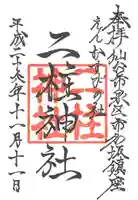 奉拝 仙台市泉区市名坂鎮座
えんむすび社
二柱神社
平成二十六年十一月十一日